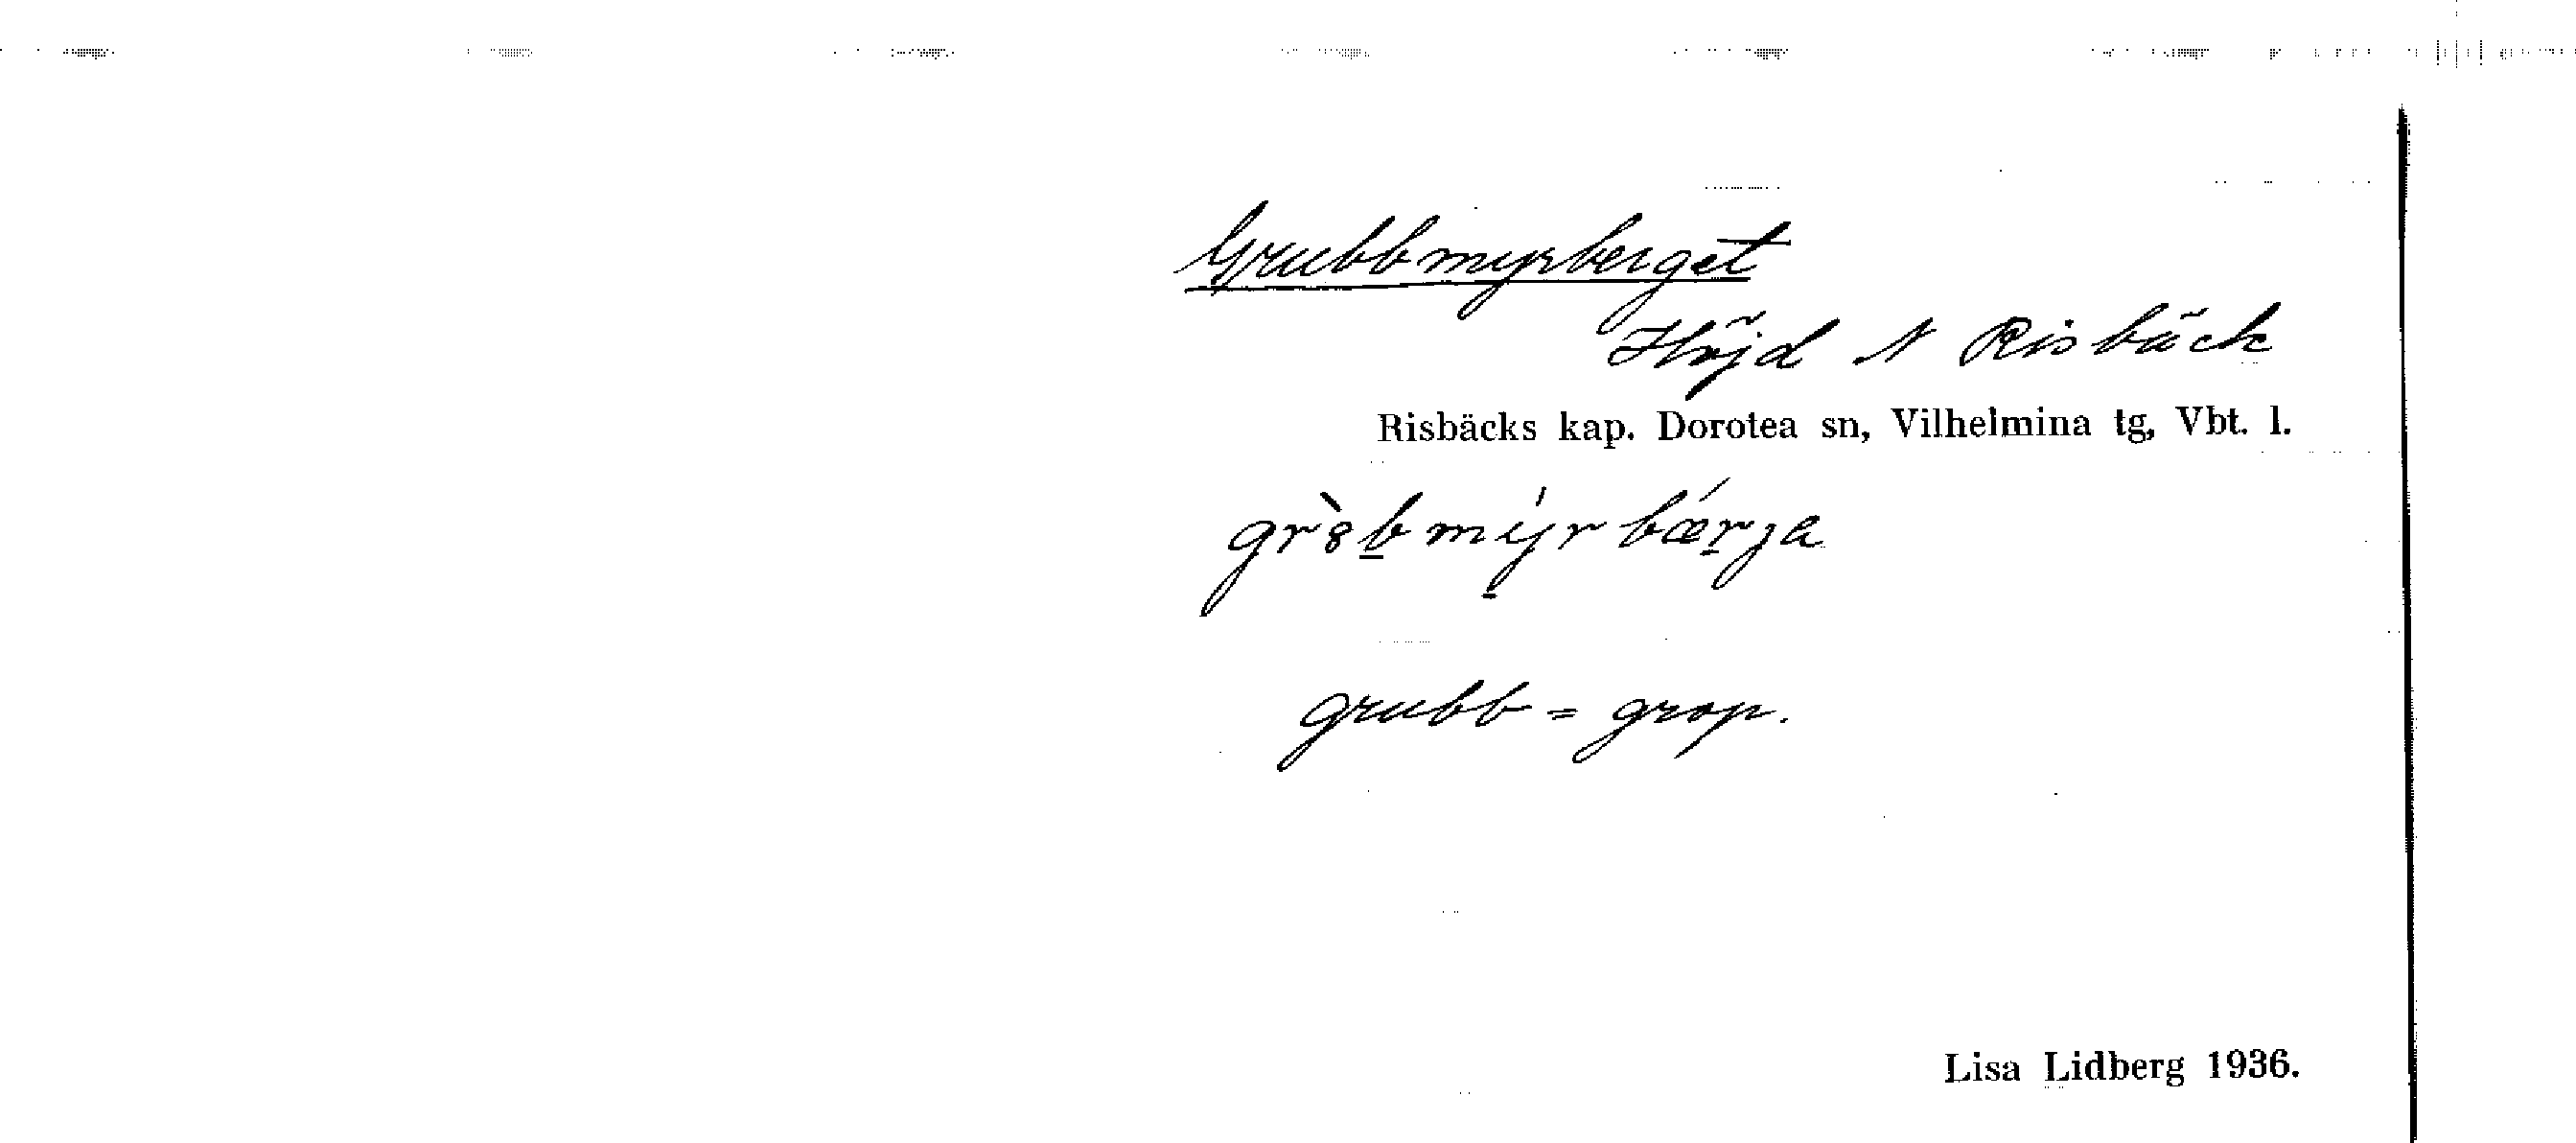 Grubbmyrberget
Höjd N Risbäck
Risbäcks kap. Dorotea sn, Vilhelmina tg, Vbt. l.
grubb = grop.
Lisa Lidberg 1936.